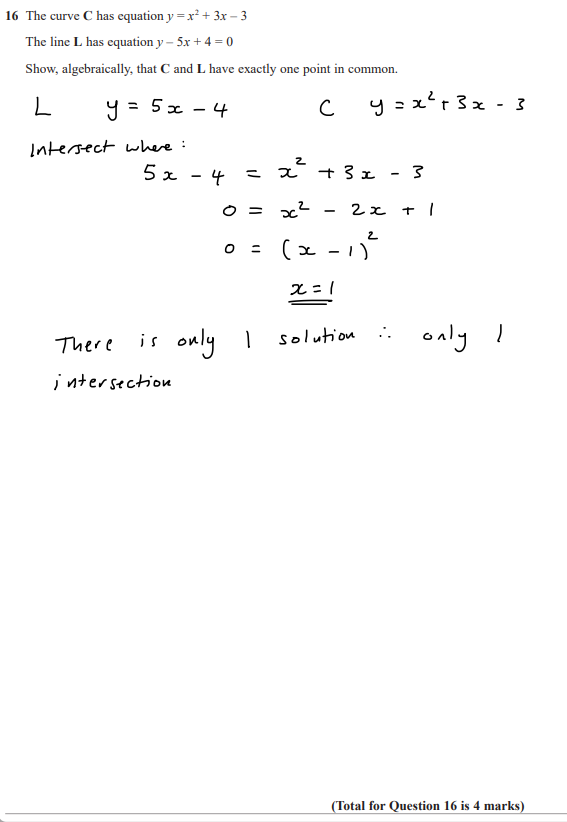 16 The curve C has equation y = x² + 3x – 3
The line L has equation y – 5x + 4 = 0
Show, algebraically, that C and L have exactly one point in common.
L y = 5x - 4 C y = x² + 3x - 3
Intersect where :
5x - 4 = x² + 3x - 3
0 = x² - 2x + 1
0 = (x - 1)²
x = 1
There is only 1 solution ∴ only 1
intersection
(Total for Question 16 is 4 marks)